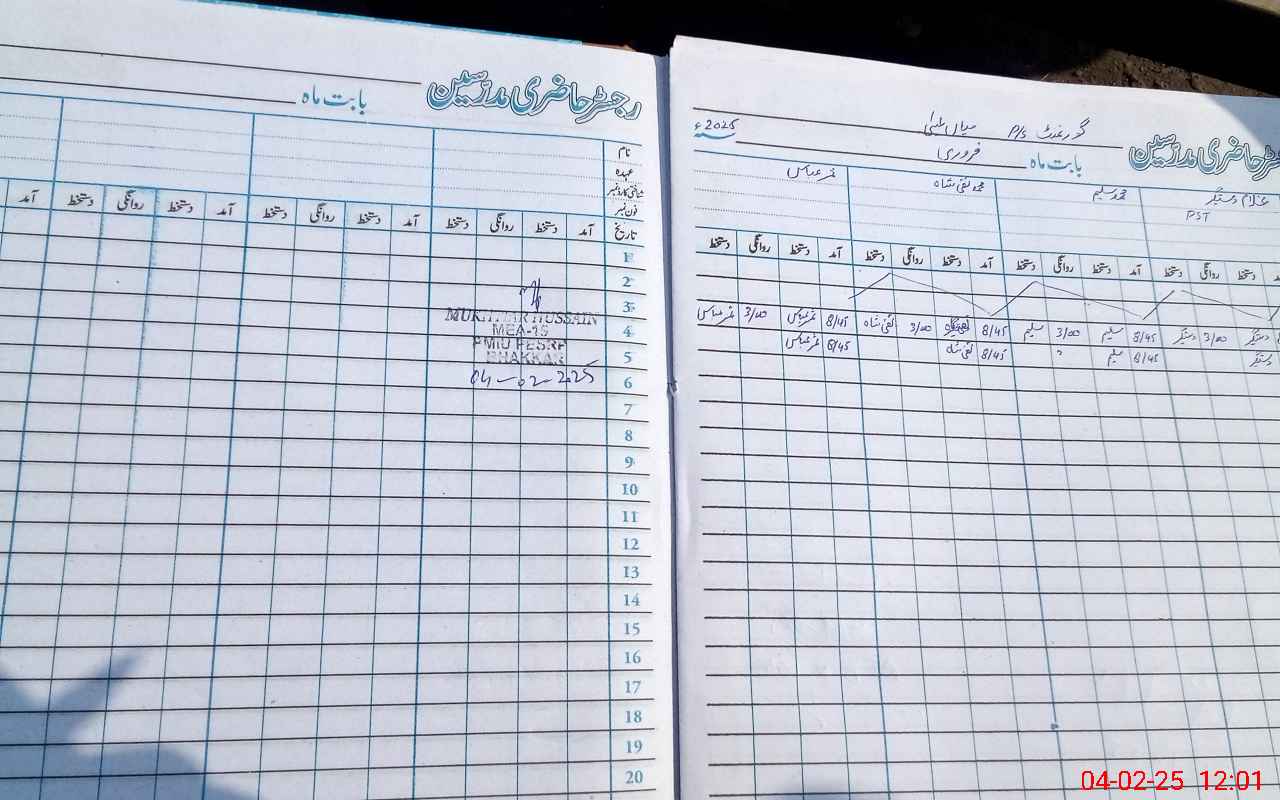 رجسٹر حاضری مدرسین
بابت ماہ
نام
عہدہ
شناختی کارڈ نمبر
فون نمبر
تاریخ آمد دستخط روانگی دستخط آمد دستخط روانگی دستخط آمد دستخط روانگی دستخط آمد
1
2
3
4
5
6
7
8
9
10
11
12
13
14
15
16
17
18
19
20
MUKHTIAR HUSSAIN
MEA-15
PMIU PESRP
BHAKKAR
04-02-2025
رجسٹر حاضری مدرسین
گورنمنٹ P/S میاں
بابت ماہ فروری 2025ء
غلام دستگیر محمد سلیم محمد نقی شاہ عمر عباس
PST
دستخط روانگی دستخط آمد دستخط روانگی دستخط آمد دستخط روانگی دستخط آمد دستخط روانگی دستخط
دستگیر 3/00 دستگیر 8/45 سلیم 3/00 سلیم 8/45 نقی شاہ 3/00 نقی شاہ 8/45 عمر عباس 3/00 عمر عباس
دستگیر 8/45 سلیم 8/45 نقی شاہ 8/45 عمر عباس
04-02-25 12:01